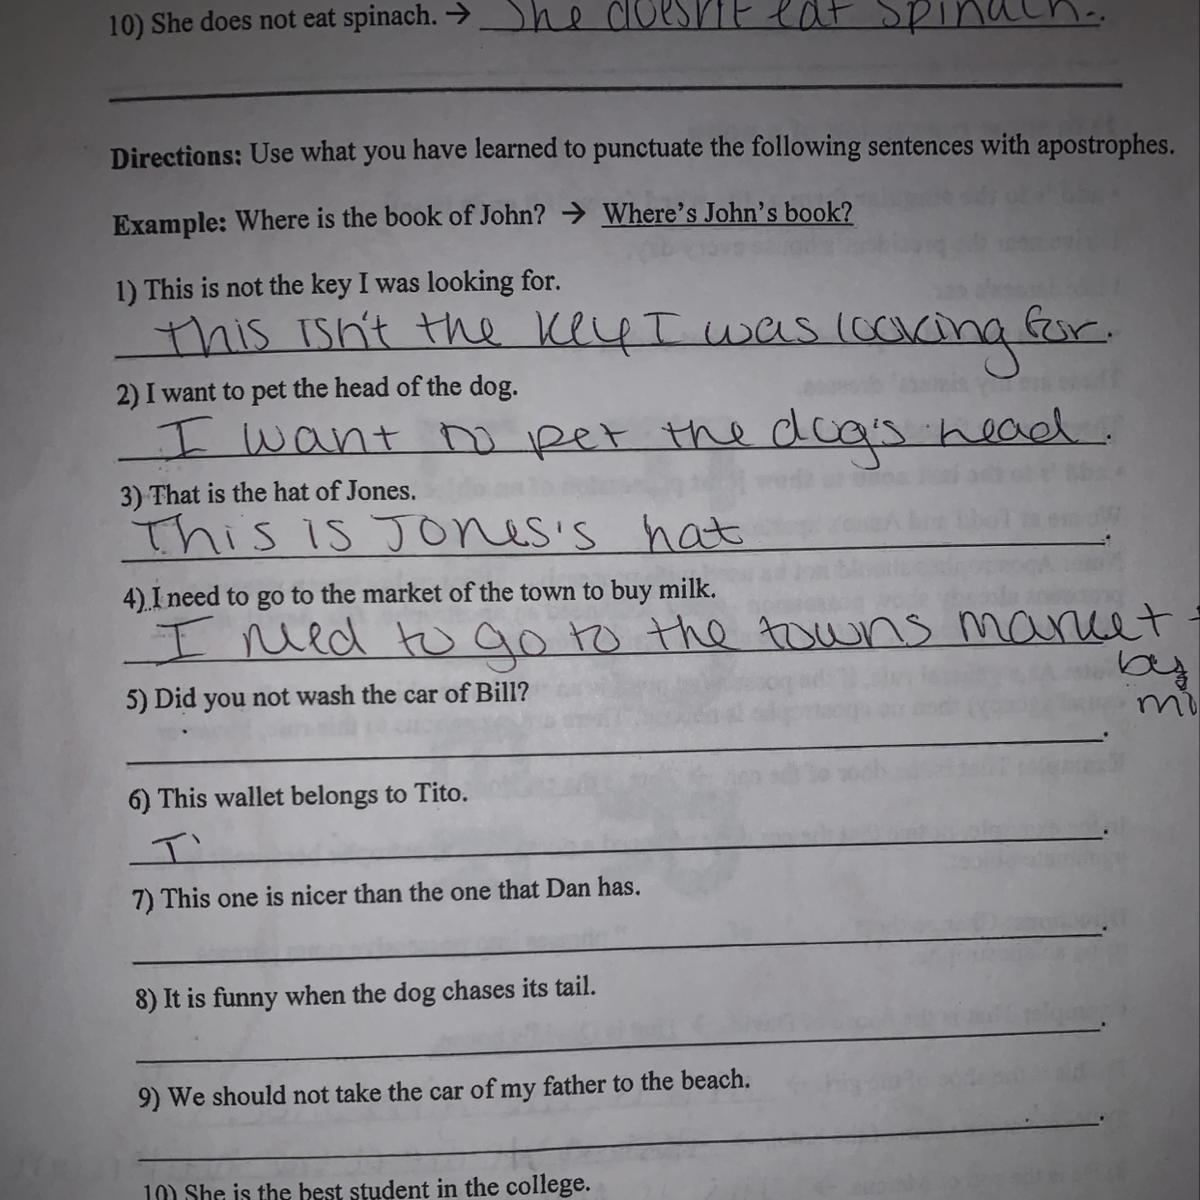 10) She does not eat spinach. → She doesn't eat spinach.
Directions: Use what you have learned to punctuate the following sentences with apostrophes.
Example: Where is the book of John? → Where's John's book?
1) This is not the key I was looking for.
This isn't the key I was looking for.
2) I want to pet the head of the dog.
I want to pet the dog's head.
3) That is the hat of Jones.
This is Jones's hat.
4) I need to go to the market of the town to buy milk.
I need to go to the towns market
buy
5) Did you not wash the car of Bill?
6) This wallet belongs to Tito.
T
7) This one is nicer than the one that Dan has.
8) It is funny when the dog chases its tail.
9) We should not take the car of my father to the beach.
10) She is the best student in the college.